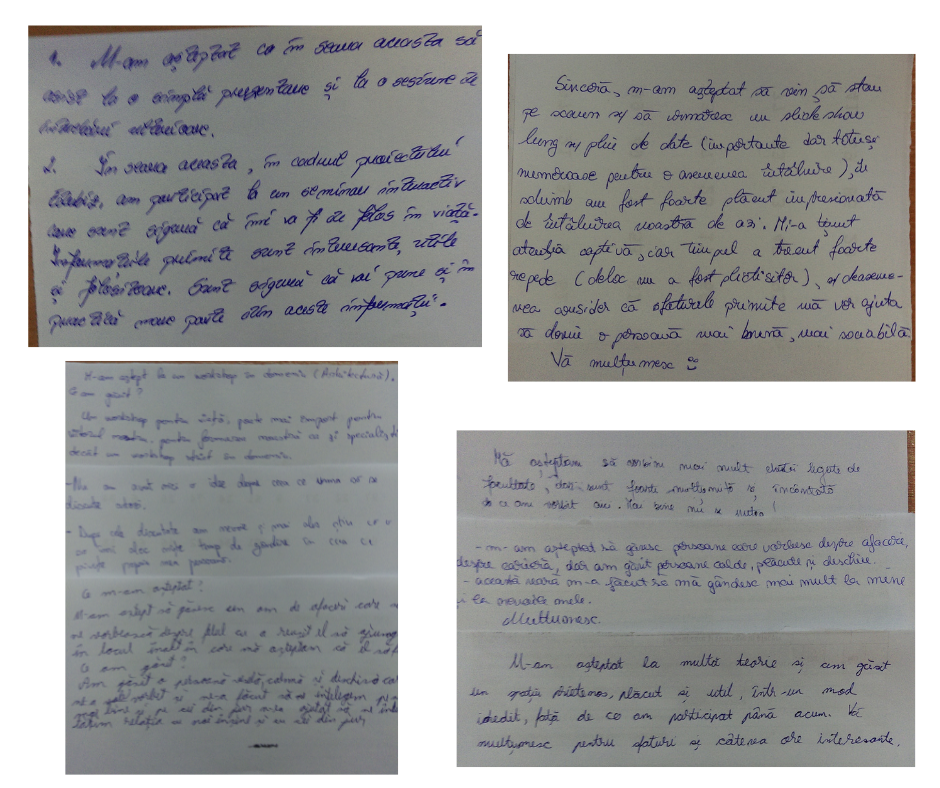 1. M-am așteptat ca în seara aceasta să
asist la o simplă prezentare și la o sesiune de
întrebări
2. În seara aceasta, în cadrul proiectului
am participat la un seminar interactiv
care sunt sigură că îmi va fi de folos în viață.
Informațiile primite sunt interesante, utile
și folositoare. Sunt sigură că voi pune și în
practică mare parte din aceste informații.
Sinceră, m-am așteptat să vin, să stau
pe scaun și să urmăresc un slideshow
lung și plin de date (importante dar totuși
numeroase pentru o asemenea întâlnire), în
schimb am fost foarte plăcut impresionată
de întâlnirea voastră de azi. Mi-a ținut
atenția captivă, iar timpul a trecut foarte
repede (deloc nu a fost plictisitor), și deaseme-
nea consider că sfaturile primite mă vor ajuta
să devin o persoană mai bună, mai sociabilă.
Vă mulțumesc
M-am aștept la un workshop în domeniu (Arhitectură).
Ce am găsit?
Un workshop pentru viață, poate mai important pentru
viitorul nostru, pentru formarea noastră ca și specialiști
decât un workshop strict în domeniu.
- Nu am avut nici o idee despre ceea ce urma să se
discute
- După cele discutate am
timp de gândire în ceea ce
Ce m-am așteptat?
M-am aștept să găsesc un om de afaceri care
ne vorbească despre felul cu a reușit el să ajungă
în locul înalt în care mă așteptam să îl văd
Ce am găsit?
Am găsit o persoană caldă, calmă și deschisă
ne-a vorbit și ne-a făcut să ne înțelegem pe
noi și pe cei din jur
relația cu noi înșine și cu cei din jur.
Mă așteptam să conțină mai mult chestii legate de
facultate, dar sunt foarte mulțumită și încântată
de ce am vorbit aici. Mai bine nu se putea!
- m-am așteptat să găsesc persoane care vorbesc despre afaceri,
despre carieră, dar am găsit persoane calde, plăcute și deschise.
- această seară m-a făcut să mă gândesc mai mult la mine
și la nevoile mele.
Mulțumesc.
M-am așteptat la multă teorie și am găsit
un spațiu prietenos, plăcut și util, într-un mod
inedit, față de ce am participat până acum. Vă
mulțumesc pentru sfaturi și câteva ore interesante.